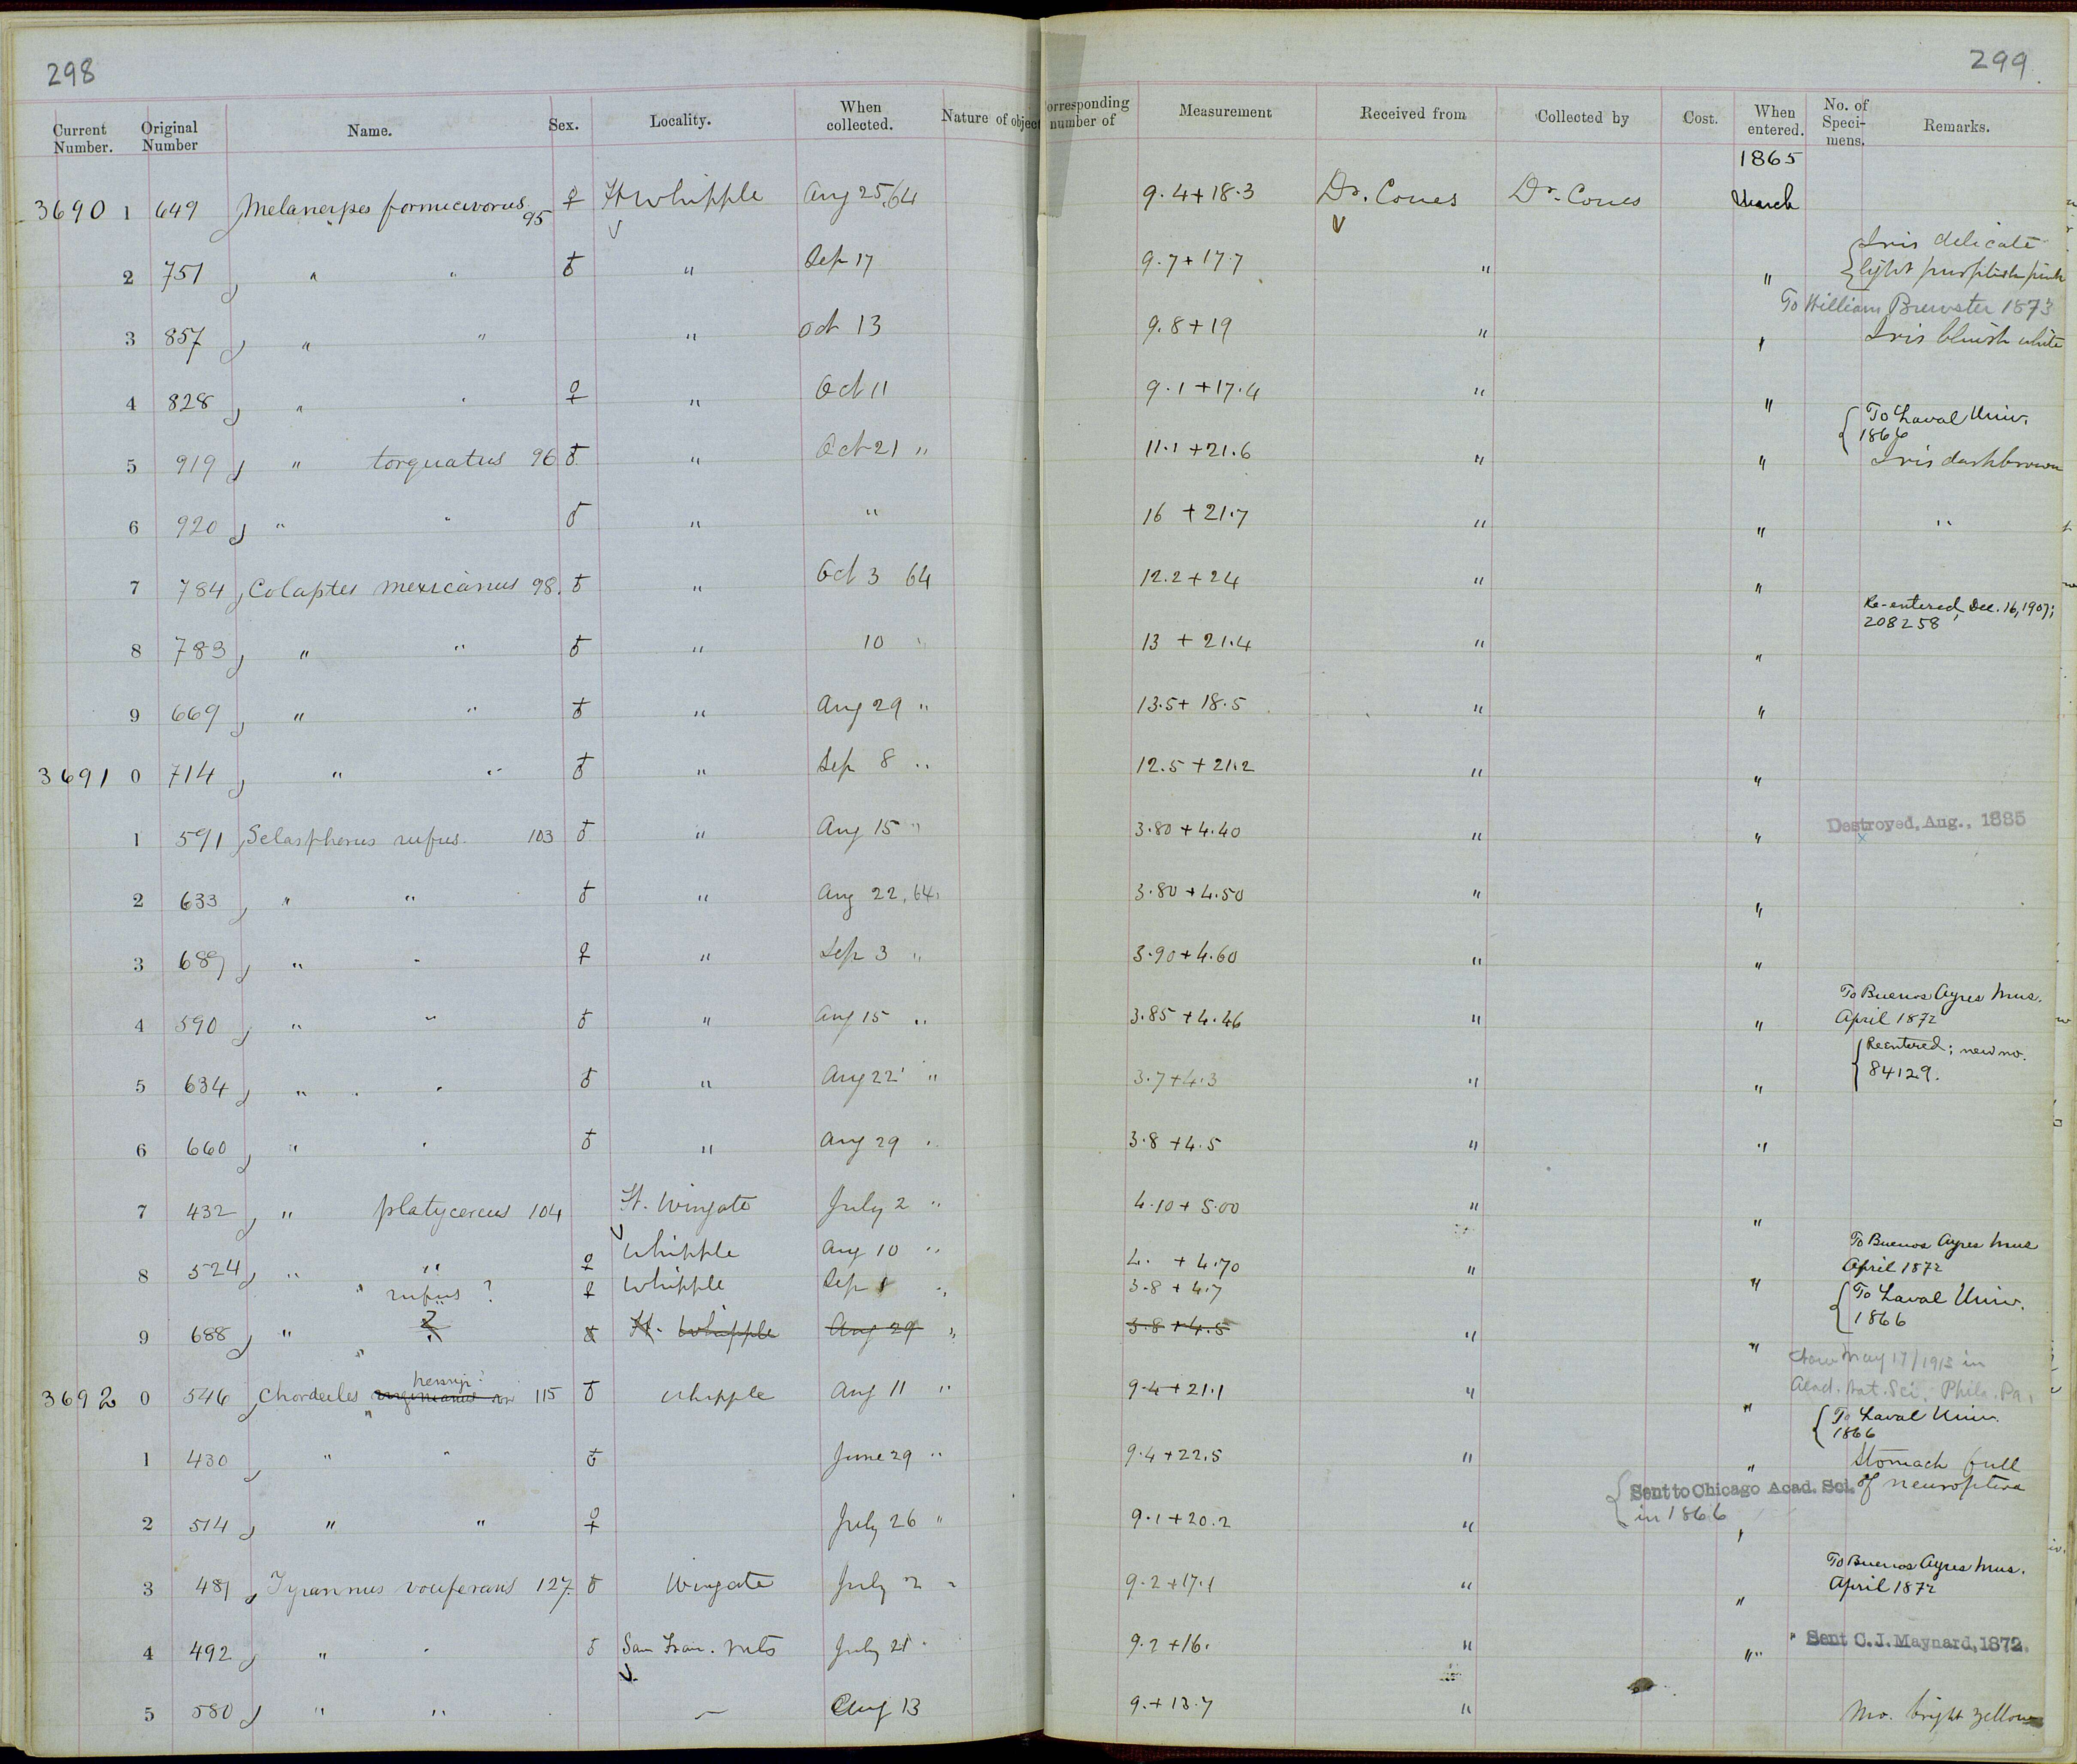 298
299
Current Number. Original Number Name. Sex. Locality. When collected. Nature of object Corresponding number of Measurement Received from Collected by Cost. When entered. No. of Specimens. Remarks.
1865
3690 1 649 Melanerpes formicivorus 95 ♀ Ft Whipple Aug 25, 64 9.4+18.3 Dr. Coues Dr. Coues March
2 751 " " ♂ " Sep 17 9.7+17.7 " " { Iris delicate
light purplish pink
To William Brewster 1873
3 857 " " " Oct 13 9.8+19 " " Iris bluish white
4 828 " " ♀ " Oct 11 9.1+17.4 " "
{ To Laval Univ.
1866
5 919 " torquatus 96 ♂ " Oct 21 " 11.1+21.6 " " Iris dark brown
6 920 " " ♂ " " 16 +21.7 " " "
7 784 Colaptes mexicanus 98. ♂ " Oct 3 64 12.2+24 " "
Re-entered, Dec. 16, 1907;
208258
8 783 " " ♂ " 10 " 13 + 21.4 " "
9 669 " " ♂ " Aug 29 " 13.5+ 18.5 " "
3691 0 714 " " ♂ " Sep 8 " 12.5 +21.2 " "
1 591 Selasphorus rufus. 103 ♂ " Aug 15 " 3.80 +4.40 " " Destroyed, Aug., 1885
x
2 633 " " ♂ " Aug 22, 64 3.80 +4.50 " "
3 689 " " ♀ " Sep 3 " 3.90+4.60 " "
To Buenos Ayres Mus.
4 590 " " ♂ " Aug 15 " 3.85 +4.46 " " April 1872
{ Reentered; new no.
84129.
5 634 " " ♂ " Aug 22 " 3.7+4.3 " "
6 660 " " ♂ " Aug 29 " 3.8 +4.5 " "
7 432 " platycercus 104 Ft. Wingate July 2 " 4.10+ 5.00 " "
To Buenos Ayres Mus
8 524 " " ♀ Whipple Aug 10 " 4. + 4.70 " " April 1872
" rufus ? ♀ Whipple Sep 1 " 3.8 + 4.7
{ To Laval Univ.
1866
9 688 " ? ♂ Ft. Whipple Aug 29 " 3.8 +4.5 " "
Now May 17/1913 in
Acad. Nat. Sci. Phila. Pa.
3692 0 546 Chordeiles virginianus henryi? 115 ♂ Whipple Aug 11 " 9.4+21.1 " "
{ To Laval Univ.
1866
1 430 " " ♂ June 29 " 9.4+22.5 " " Stomach full
of neuroptera
{ Sent to Chicago Acad. Sci.
in 1866
2 514 " " ♀ July 26 " 9.1+20.2 " "
To Buenos Ayres Mus.
April 1872
3 481 Tyrannus vociferans 127. ♂ Wingate July 2 " 9.2+17.1 " "
4 492 " " ♂ San Fran. Mts July 21 " 9.2 +16. " " " Sent C. J. Maynard, 1872.
5 580 " " — Aug 13 9.+13.7 " Mo. bright yellow